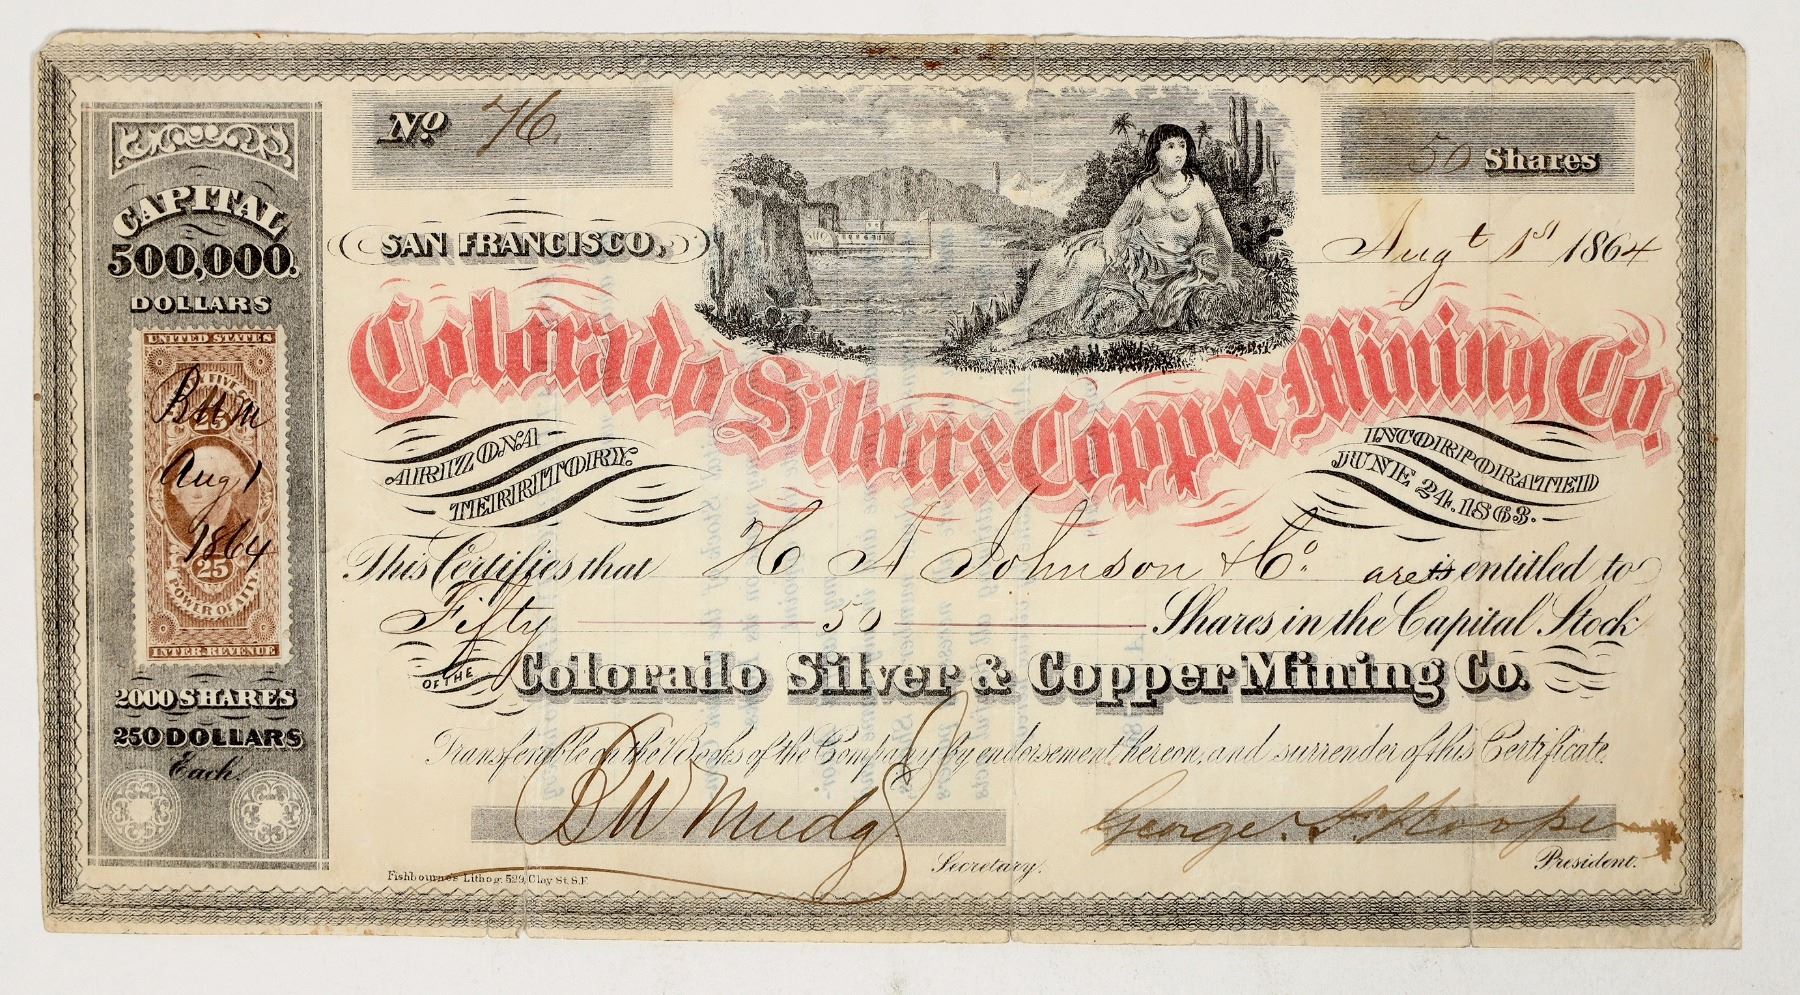 No 76.
50 Shares
CAPITAL
500,000.
DOLLARS
SAN FRANCISCO,
Augt 1st 1864
Colorado Silver & Copper Mining Co.
ARIZONA
TERRITORY.
INCORPORATED
JUNE 24. 1863.
UNITED STATES
BWM
Aug 1
1864
25
POWER OF ATTY.
INTER. REVENUE
This Certifies that H A Johnson & Co. are is entitled to
Fifty 50 Shares in the Capital Stock
OF THE Colorado Silver & Copper Mining Co.
2000 SHARES
250 DOLLARS
Each.
Transferable on the Books of the Company by endorsement hereon, and surrender of this Certificate.
B W Mudge
Secretary.
George F. Hooper
President.
Fishbourne's Lithog. 529, Clay St. S.F.